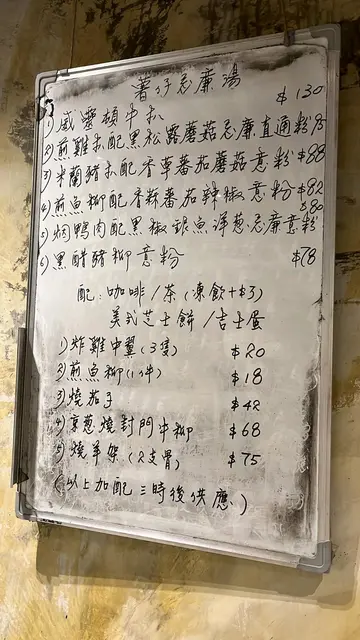 薯仔忌廉湯
1) 威靈頓牛扒 $130
2) 煎雞扒配黑松露蘑菇忌廉直通粉
3) 米蘭豬扒配香草番茄蘑菇意粉 $88
4) 煎魚柳配香辣番茄辣椒意粉 $82
5) 烟鴨肉配黑椒銀魚洋葱忌廉意粉 $80
6) 黑醋豬柳意粉 $78
配：咖啡/茶 (凍飲+$3)
美式芝士餅/吉士蛋
1) 炸雞中翼 (3隻) $20
2) 煎魚柳 (1件) $18
3) 燒茄子 $42
4) 京葱燒封門牛柳 $68
5) 燒羊架 (2支骨) $75
(以上加配三時後供應)